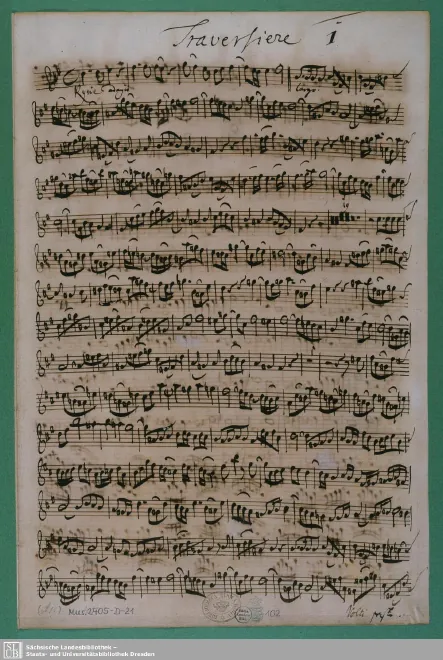 Traversiere I
Kyrie adagio
Largo
Mus. 2405-D-21
102
Volti
Sächsische Landesbibliothek –
Staats- und Universitätsbibliothek Dresden